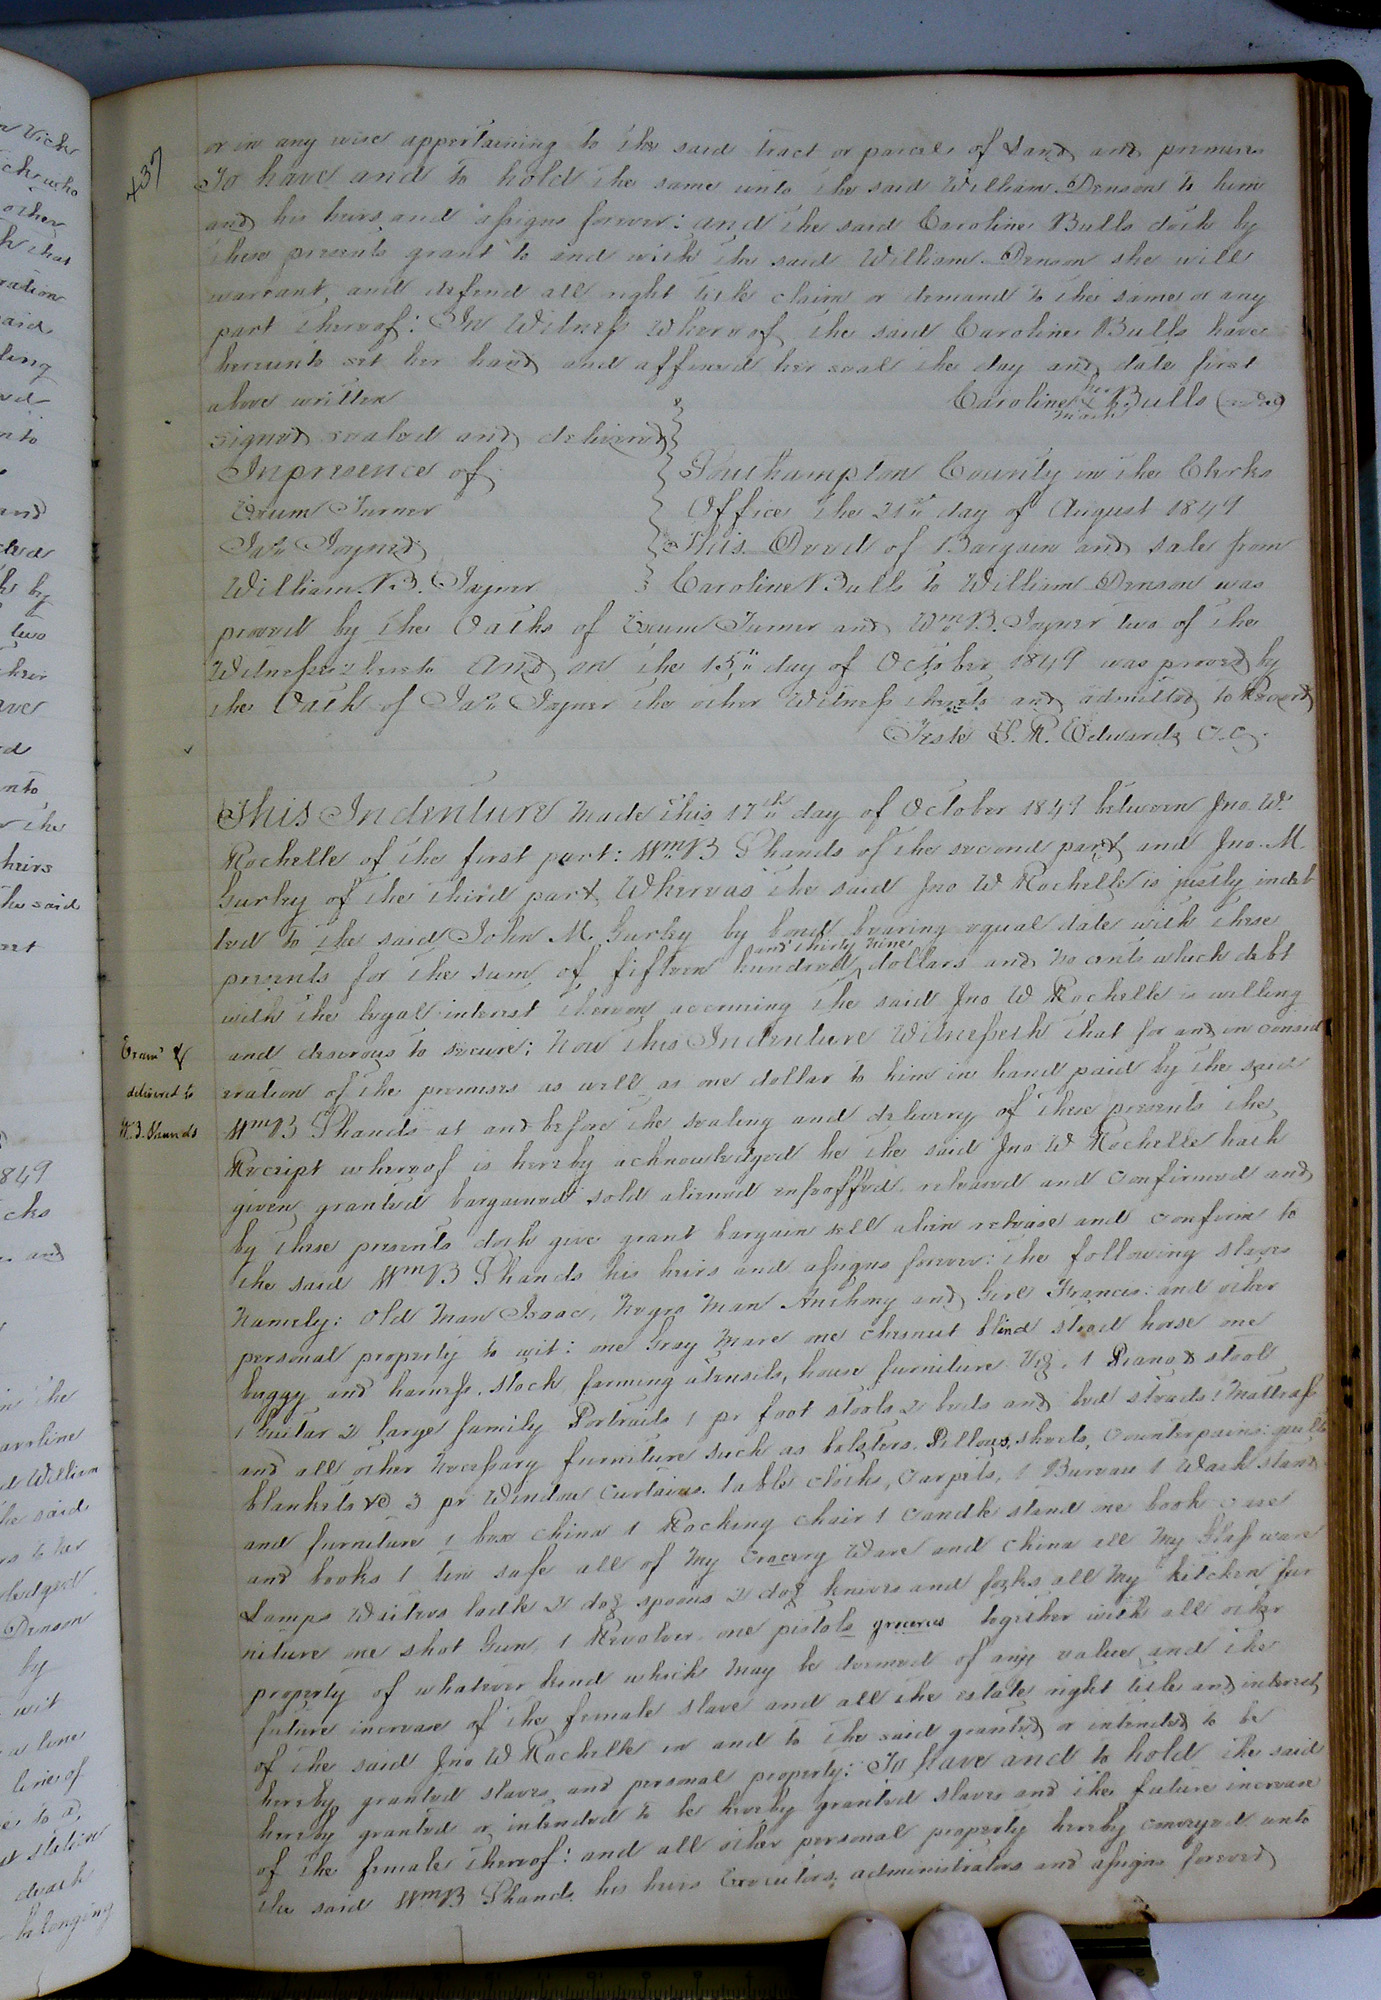 437
or in any wise appertaining to the said tract or parcel of Land and premises
To have and to hold the same unto the said William Denson to him
and his heirs and assigns forever: and the said Caroline Bulls doth by
these presents grant to and with the said William Denson she will
warrant, and defend all right title claim or demand to the same or any
part thereof: In Witness Whereof the said Caroline Bulls have
hereunto set her hand and affixed her seal the day and date first
above written
Caroline her X mark Bulls (seal)
signed sealed and delivered
In presence of
Exum Turner
Jas. Joyner
William. B. Joyner
Southampton County in the Clerks
Office the 21st day of August 1849
This Deed of Bargain and sale from
Caroline Bulls to William Denson was
proved by the Oaths of Exum Turner and Wm. B. Joyner two of the
Witnesses hereto And on the 15th day of October 1849 was proved by
the Oath of Jas. Joyner the other Witness thereto and admitted to Record
Teste L. R. Edwards C.C.
This Indenture Made this 17th day of October 1849 between Jno. W.
Rochelle of the first part: Wm B Shands of the second part and Jno. M.
Gurley of the third part Whereas the said Jno W Rochelle is justly indeb
ted to the said John M. Gurley by bond bearing equal date with these
and thirty nine
presents for the sum of fifteen hundred dollars and no cents which debt
with the legal interest thereon accruing the said Jno W Rochelle is willing
and desirous to secure: Now this Indenture Witnesseth that for and in consid
eration of the premises as well as one dollar to him in hand paid by the said
Wm B Shands at and before the sealing and delivery of these presents the
Receipt whereof is hereby acknowledged he the said Jno W Rochelle hath
given granted bargained sold aliened enfeoffed released and confirmed and
by these presents doth give grant bargain sell alien release and confirm to
the said Wm B Shands his heirs and assigns forever: the following slaves
Namely: Old Man Isaac, Negro Man Anthony and Girl Frances: and other
personal property to wit: one Gray Mare one chesnut blind steed horse one
buggy and harness. stock farming utensils, house furniture Viz. 1 Piano & stool
1 Guitar 2 large family Portraits 1 pr foot stools 2 beds and bed steads 1 Mattrass
and all other necessary furniture such as bolsters. Pillows, sheets, Counterpains: quilts
blankets &c 3 pr Window curtains. table cloths, carpets, 1 Bureau 1 Wash stand
and furniture 1 box china 1 Rocking chair 1 candle stand one book case
and books 1 tin safe all of my crocery Ware and china all my Glass ware
Lamps Waiters ladle 2 doz spoons 2 doz knives and forks all my kitchen fur
niture one shot Gun 1 Revolver one pistole groceries together with all other
property of whatever kind which may be deemed of any value and the
future increase of the female slave and all the estate right title and interest
of the said Jno W Rochelle in and to the said granted or intended to be
hereby granted slaves and personal property: To have and to hold the said
hereby granted or intended to be hereby granted slaves and the future increase
of the female thereof: and all other personal property hereby conveyed unto
the said Wm B Shands his heirs Executors administrators and assigns forever
Exam. &
delivered to
W. B. Shands